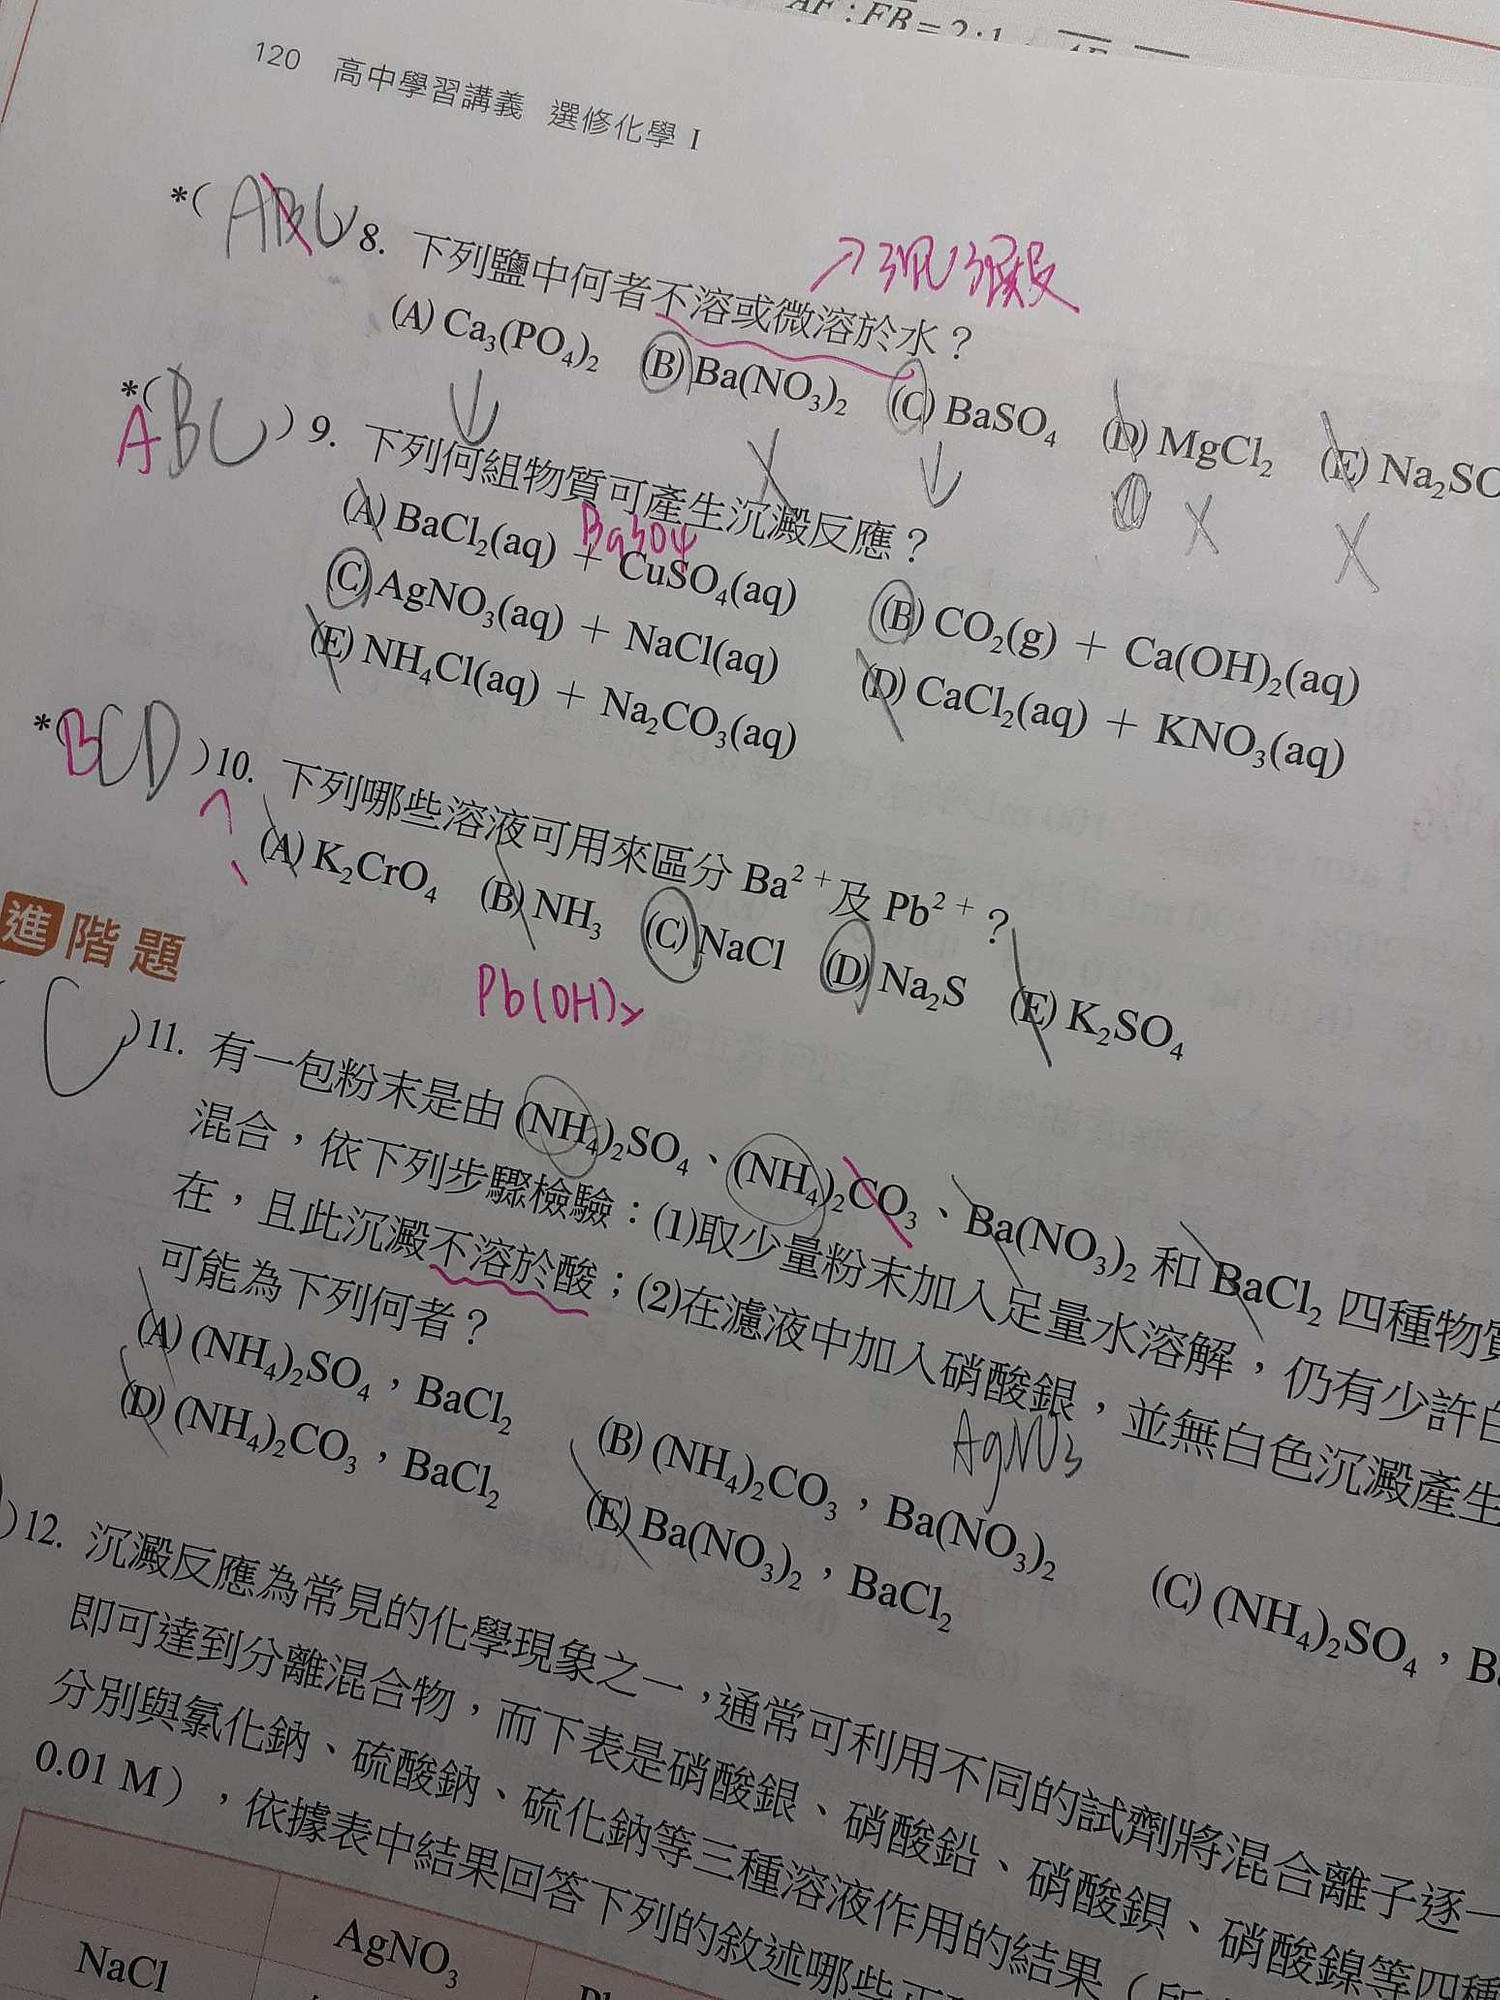 AF : FB = 2 : 1
120 高中學習講義 選修化學 I
*( ABC ) 8. 下列鹽中何者不溶或微溶於水？
→沉澱
(A) Ca₃(PO₄)₂ (B) Ba(NO₃)₂ (C) BaSO₄ (D) MgCl₂ (E) Na₂SO
*( ABC ) 9. 下列何組物質可產生沉澱反應？
BaSO4
(A) BaCl₂(aq) + CuSO₄(aq) (B) CO₂(g) + Ca(OH)₂(aq)
(C) AgNO₃(aq) + NaCl(aq) (D) CaCl₂(aq) + KNO₃(aq)
(E) NH₄Cl(aq) + Na₂CO₃(aq)
*( BCD ) 10. 下列哪些溶液可用來區分 Ba²⁺及 Pb²⁺？
(A) K₂CrO₄ (B) NH₃ (C) NaCl (D) Na₂S (E) K₂SO₄
Pb(OH)₂
進階題
( C ) 11. 有一包粉末是由 (NH₄)₂SO₄、(NH₄)₂CO₃、Ba(NO₃)₂ 和 BaCl₂ 四種物質
混合，依下列步驟檢驗：(1)取少量粉末加入足量水溶解，仍有少許白
在，且此沉澱不溶於酸；(2)在濾液中加入硝酸銀，並無白色沉澱產生
AgNO3
可能為下列何者？
(A) (NH₄)₂SO₄，BaCl₂ (B) (NH₄)₂CO₃，Ba(NO₃)₂ (C) (NH₄)₂SO₄，Ba
(D) (NH₄)₂CO₃，BaCl₂ (E) Ba(NO₃)₂，BaCl₂
) 12. 沉澱反應為常見的化學現象之一，通常可利用不同的試劑將混合離子逐一
即可達到分離混合物，而下表是硝酸銀、硝酸鉛、硝酸鋇、硝酸鎳等四種
分別與氯化鈉、硫酸鈉、硫化鈉等三種溶液作用的結果（所
0.01 M），依據表中結果回答下列的敘述哪些正
AgNO₃
NaCl